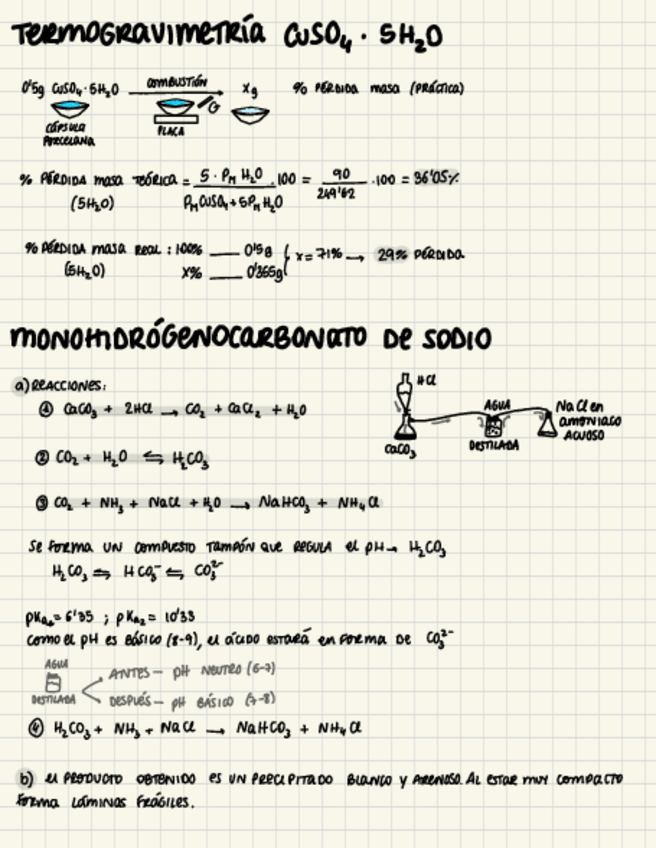 Termogravimetría CuSO₄ · 5H₂O
0'5g CuSO₄·5H₂O COMBUSTIÓN → xg % PÉRDIDA masa (PRÁCTICA)
CÁPSULA PORCELANA PLACA
% PÉRDIDA masa TEÓRICA = 5 · PM H₂O / PM CuSO₄ + 5PM H₂O · 100 = 90 / 249'62 · 100 = 36'05%
(5H₂O)
% PÉRDIDA masa REAL : 100% ___ 0'5g
(5H₂O) x% ___ 0'355g } x = 71% → 29% PÉRDIDA
MONOHIDRÓGENOCARBONATO De SODIO
a) REACCIONES:
① CaCO₃ + 2HCl → CO₂ + CaCl₂ + H₂O
HCl
CaCO₃
AGUA
DESTILADA
NaCl en
amoniaco
acuoso
② CO₂ + H₂O ⇆ H₂CO₃
③ CO₂ + NH₃ + NaCl + H₂O → NaHCO₃ + NH₄Cl
Se forma un compuesto tampón que regula el pH → H₂CO₃
H₂CO₃ ⇆ HCO₃⁻ ⇆ CO₃²⁻
pKa₁ = 6'35 ; pKa₂ = 10'33
Como el pH es básico (8-9), el ácido estará en forma de CO₃²⁻
AGUA
DESTILADA
ANTES — pH NEUTRO (6-7)
DESPUÉS — pH BÁSICO (7-8)
④ H₂CO₃ + NH₃ + NaCl → NaHCO₃ + NH₄Cl
b) el producto obtenido es un precipitado blanco y arenoso. Al estar muy compacto
forma láminas frágiles.